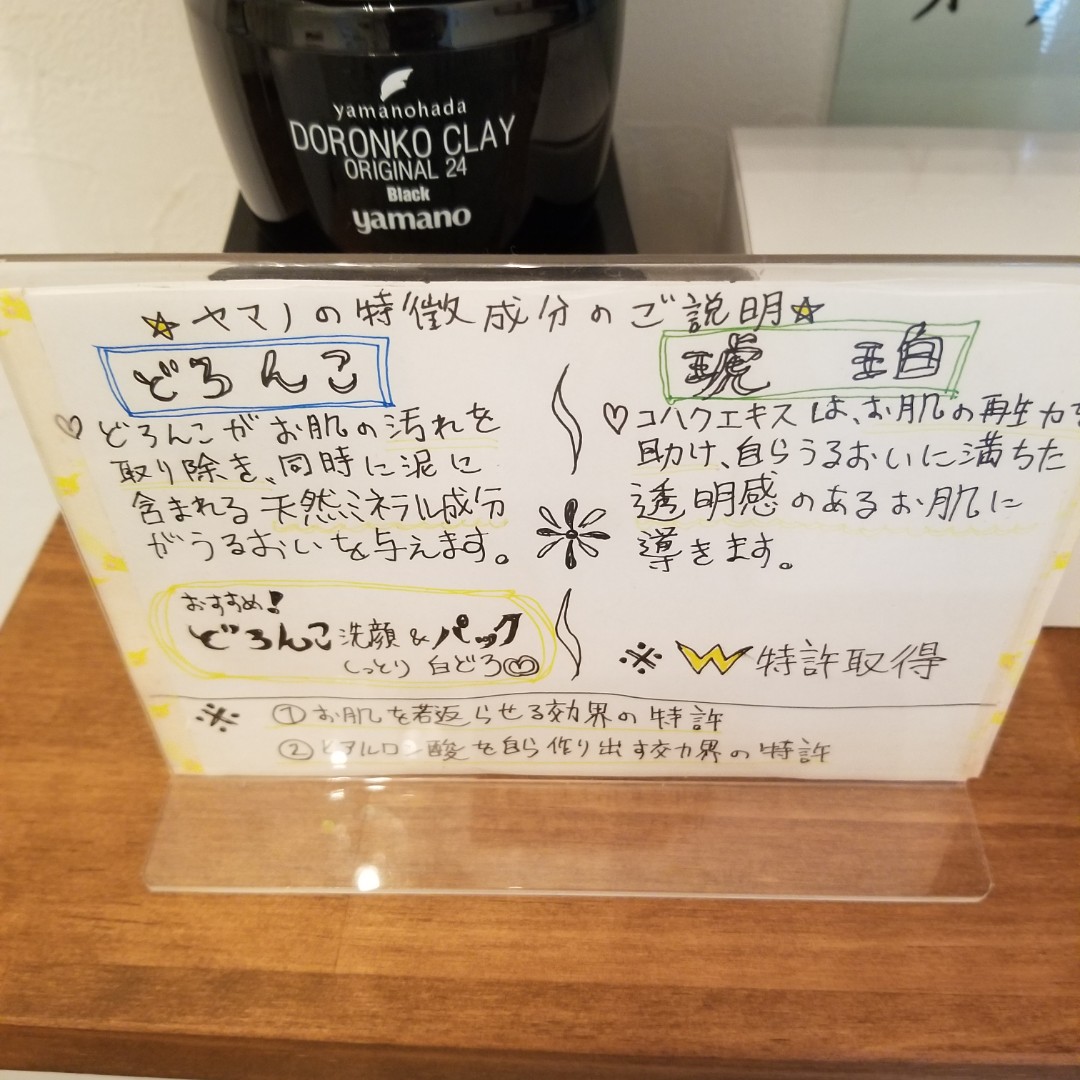 yamanohada
DORONKO CLAY
ORIGINAL 24
Black
yamano
☆ヤマノの特徴成分のご説明☆
どろんこ
♡どろんこがお肌の汚れを
取り除き、同時に泥に
含まれる天然ミネラル成分
がうるおいを与えます。
おすすめ!
どろんこ洗顔&パック
しっとり 白どろ♡
琥珀
♡コハクエキスは、お肌の再生力を
助け、自らうるおいに満ちた
透明感のあるお肌に
導きます。
※W特許取得
※ ①お肌を若返らせる効界の特許
②ヒアルロン酸を自ら作り出す効界の特許